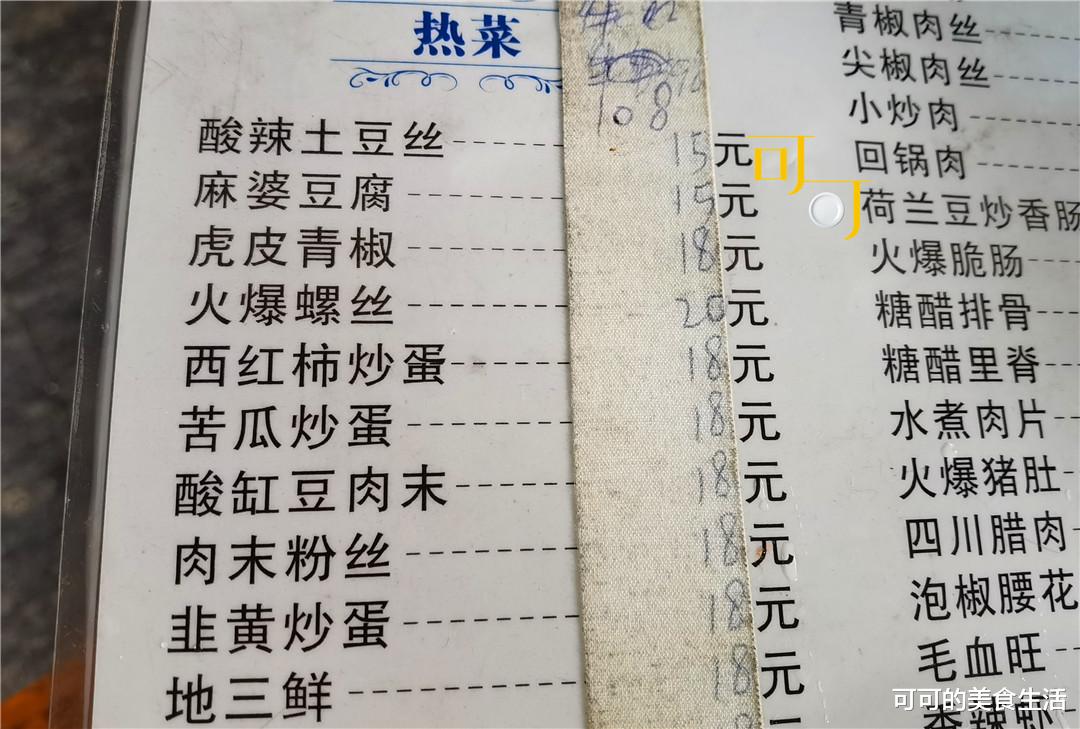 热菜
108
酸辣土豆丝 15元
麻婆豆腐 15元
虎皮青椒 18元
火爆螺丝 20元
西红柿炒蛋 18元
苦瓜炒蛋 18元
酸缸豆肉末 18元
肉末粉丝 18元
韭黄炒蛋 18元
地三鲜 18元
青椒肉丝
尖椒肉丝
小炒肉
回锅肉
荷兰豆炒香肠
火爆脆肠
糖醋排骨
糖醋里脊
水煮肉片
火爆猪肚
四川腊肉
泡椒腰花
毛血旺
香辣虾
可可
可可的美食生活